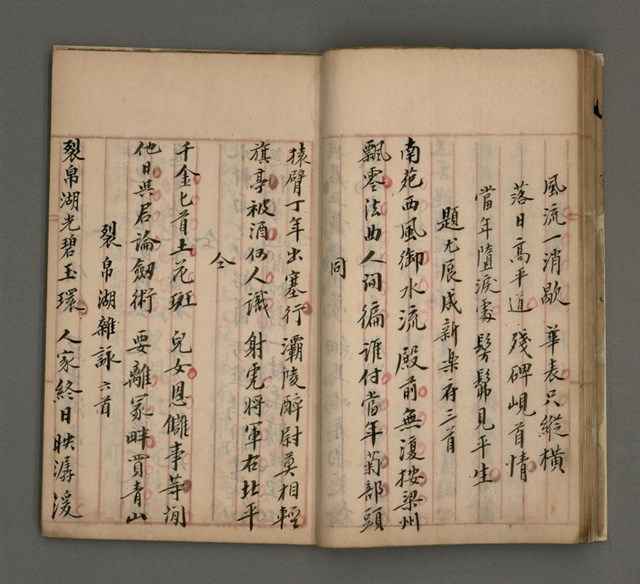 風流一消歇　華表只縱橫
落日高平道　殘碑峴首情
當年墮淚處　髣髴見平生
題尤展成新樂府三首
南苑西風御水流　殿前無復按梁州
飄零法曲人間徧　誰付當年菊部頭
同
猿臂丁年出塞行　灞陵醉尉莫相輕
旗亭被酒何人識　射虎將軍右北平
仝
千金匕首土花斑　兒女恩讎事等閒
他日與君論劒術　要離冢畔買青山
裂帛湖雜詠六首
裂帛湖光碧玉環　人家終日映潺湲